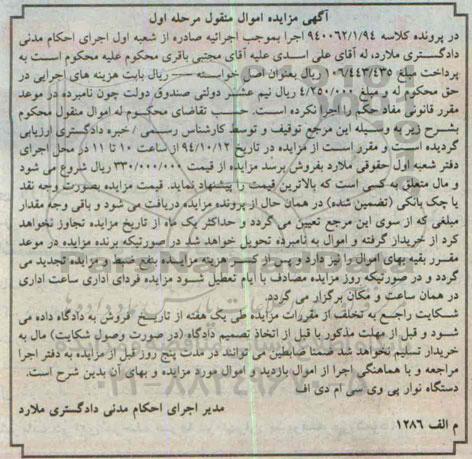 آگهی مزایده اموال منقول مرحله اول
در پرونده کلاسه ۹۴۰۰۶۲/۱/۹۴ اجرا بموجب اجرائیه صادره از شعبه اول اجرای احکام مدنی
دادگستری ملارد، له آقای علی اسدی علیه آقای مجتبی باقری محکوم علیه محکوم است به
پرداخت مبلغ ۱۰۶/۴۴۳/۴۳۵ ریال بعنوان اصل خواسته — ریال بابت هزینه های اجرایی در
حق محکوم له و مبلغ ۴/۲۵۰/۰۰۰ ریال نیم عشر دولتی صندوق دولت چون نامبرده در موعد
مقرر قانونی مفاد حکم را اجرا نکرده است. حسب تقاضای محکوم له اموال منقول محکوم
بشرح زیر به وسیله این مرجع توقیف و توسط کارشناس رسمی / خبره دادگستری ارزیابی
گردیده است و مقرر است از مزایده در تاریخ ۹۴/۱۰/۱۲ از ساعت ۱۰ تا ۱۱ در محل اجرای
دفتر شعبه اول حقوقی ملارد بفروش برسد مزایده از قیمت ۳۳۰/۰۰۰/۰۰۰ ریال شروع می شود
و مال متعلق به کسی است که بالاترین قیمت را پیشنهاد نماید. قیمت مزایده بصورت وجه نقد
یا چک بانکی (تضمین شده) در همان حال از پرونده مزایده دریافت می شود و باقی وجه مقدار
مبلغی که از سوی این مرجع تعیین می گردد و حداکثر یک ماه از تاریخ مزایده تجاوز نخواهد
کرد از خریدار گرفته و اموال به نامبرده تحویل خواهد شد در صورتیکه برنده مزایده در موعد
مقرر بقیه بهای اموال را نپردازد و پس از کسر هزینه مزایده بنفع ضبط و مزایده تجدید می
گردد و در صورتیکه روز مزایده مصادف با ایام تعطیل شود مزایده فردای اداری ساعت اداری
در همان ساعت و مکان برگزار می گردد.
شکایت راجع به تخلف از مقررات مزایده طی یک هفته از تاریخ فروش به دادگاه داده می
شود و قبل از مهلت مذکور یا قبل از اتخاذ تصمیم دادگاه (در صورت وصول شکایت) مال به
خریدار تسلیم نخواهد شد ضمنا ضابطین می توانند در مدت پنج روز قبل از مزایده به دفتر اجرا
مراجعه و با هماهنگی اجرا از اموال بازدید و اموال مورد مزایده و بهای آن بدین شرح است.
دستگاه نوار پی وی سی ام دی اف
مدیر اجرای احکام مدنی دادگستری ملارد
م الف ۱۲۸۶